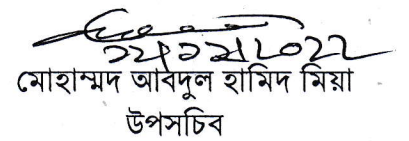 মোহাম্মদ আবদুল হামিদ মিয়া
উপসচিব